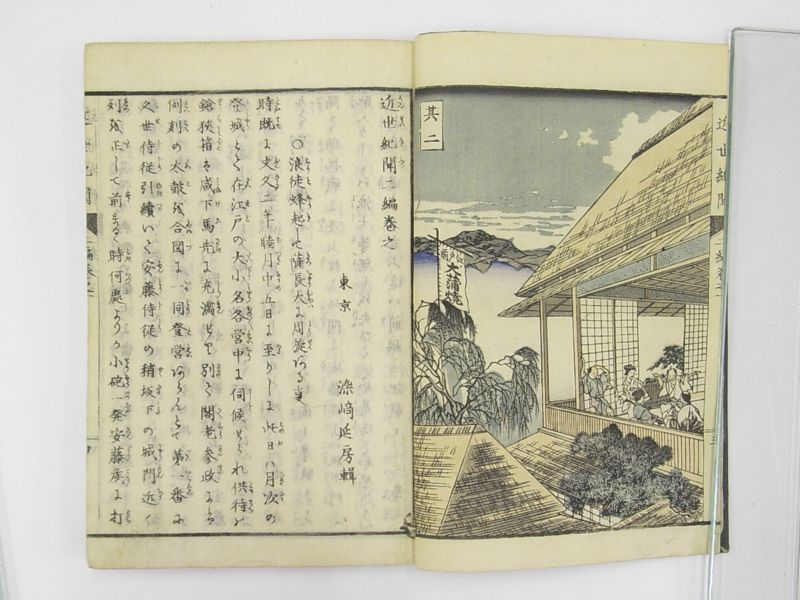 近世紀聞
二編巻之二
其二
江戸前
大蒲焼
近世紀聞二編巻之
東京 染﨑延房輯
○浪徒蜂起して薩長大に周旋ある事
時既に文久二年睦月中五日に至りしに此日ハ月次の
登城とて在江戸の大小名各営中に伺候せられ供待の
鎗挟箱を咸下馬先に充満せり別て閣老参政にハ
例刻の太鼓を合図に一同登営あらんとて第一番に
久世侍従引續いて安藤侍従の稍坂下の城門近く
列を正して前まるゝ時何處よりか小砲一発安藤矦に打